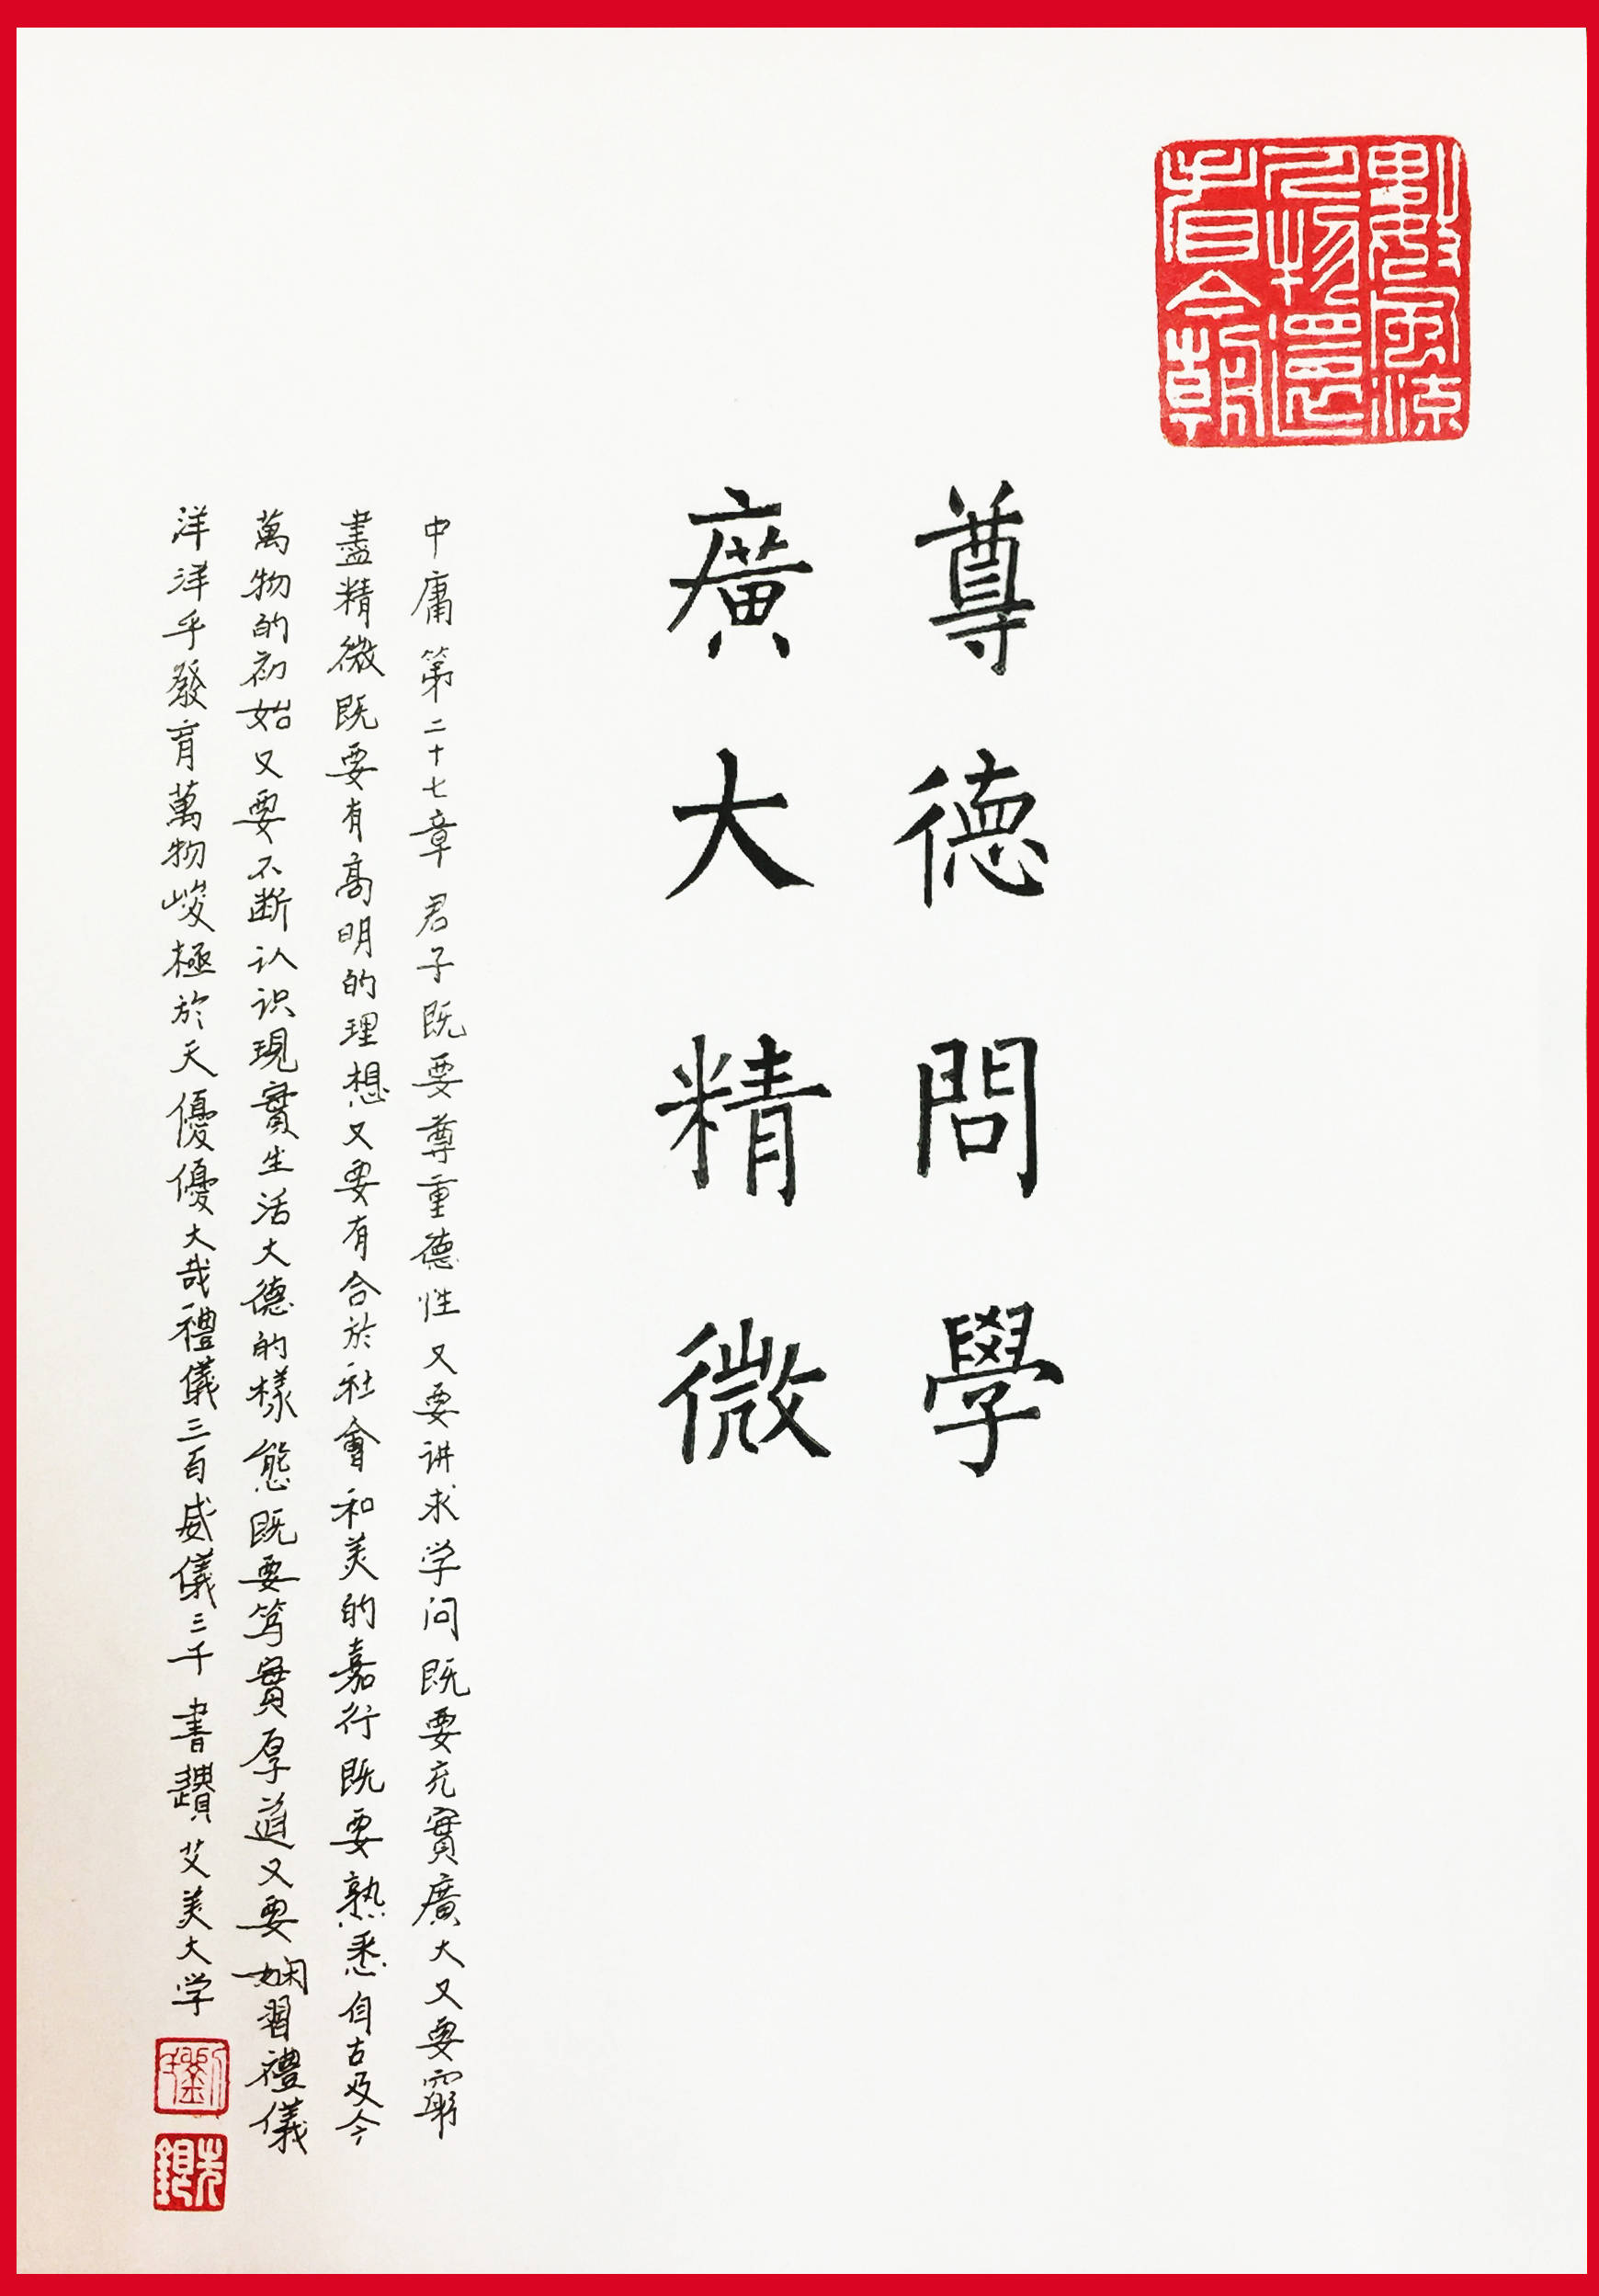 數風流
人物還
看今朝
尊德問學
廣大精微
中庸第二十七章君子既要尊重德性又要讲求学问既要充實廣大又要窮
盡精微既要有高明的理想又要有合於社會和美的嘉行既要熟悉自古及今
萬物的初始又要不断认识現實生活大德的樣態既要笃實厚道又要娴習禮儀
洋洋乎發育萬物峻極於天優優大哉禮儀三百威儀三千書艾美大学